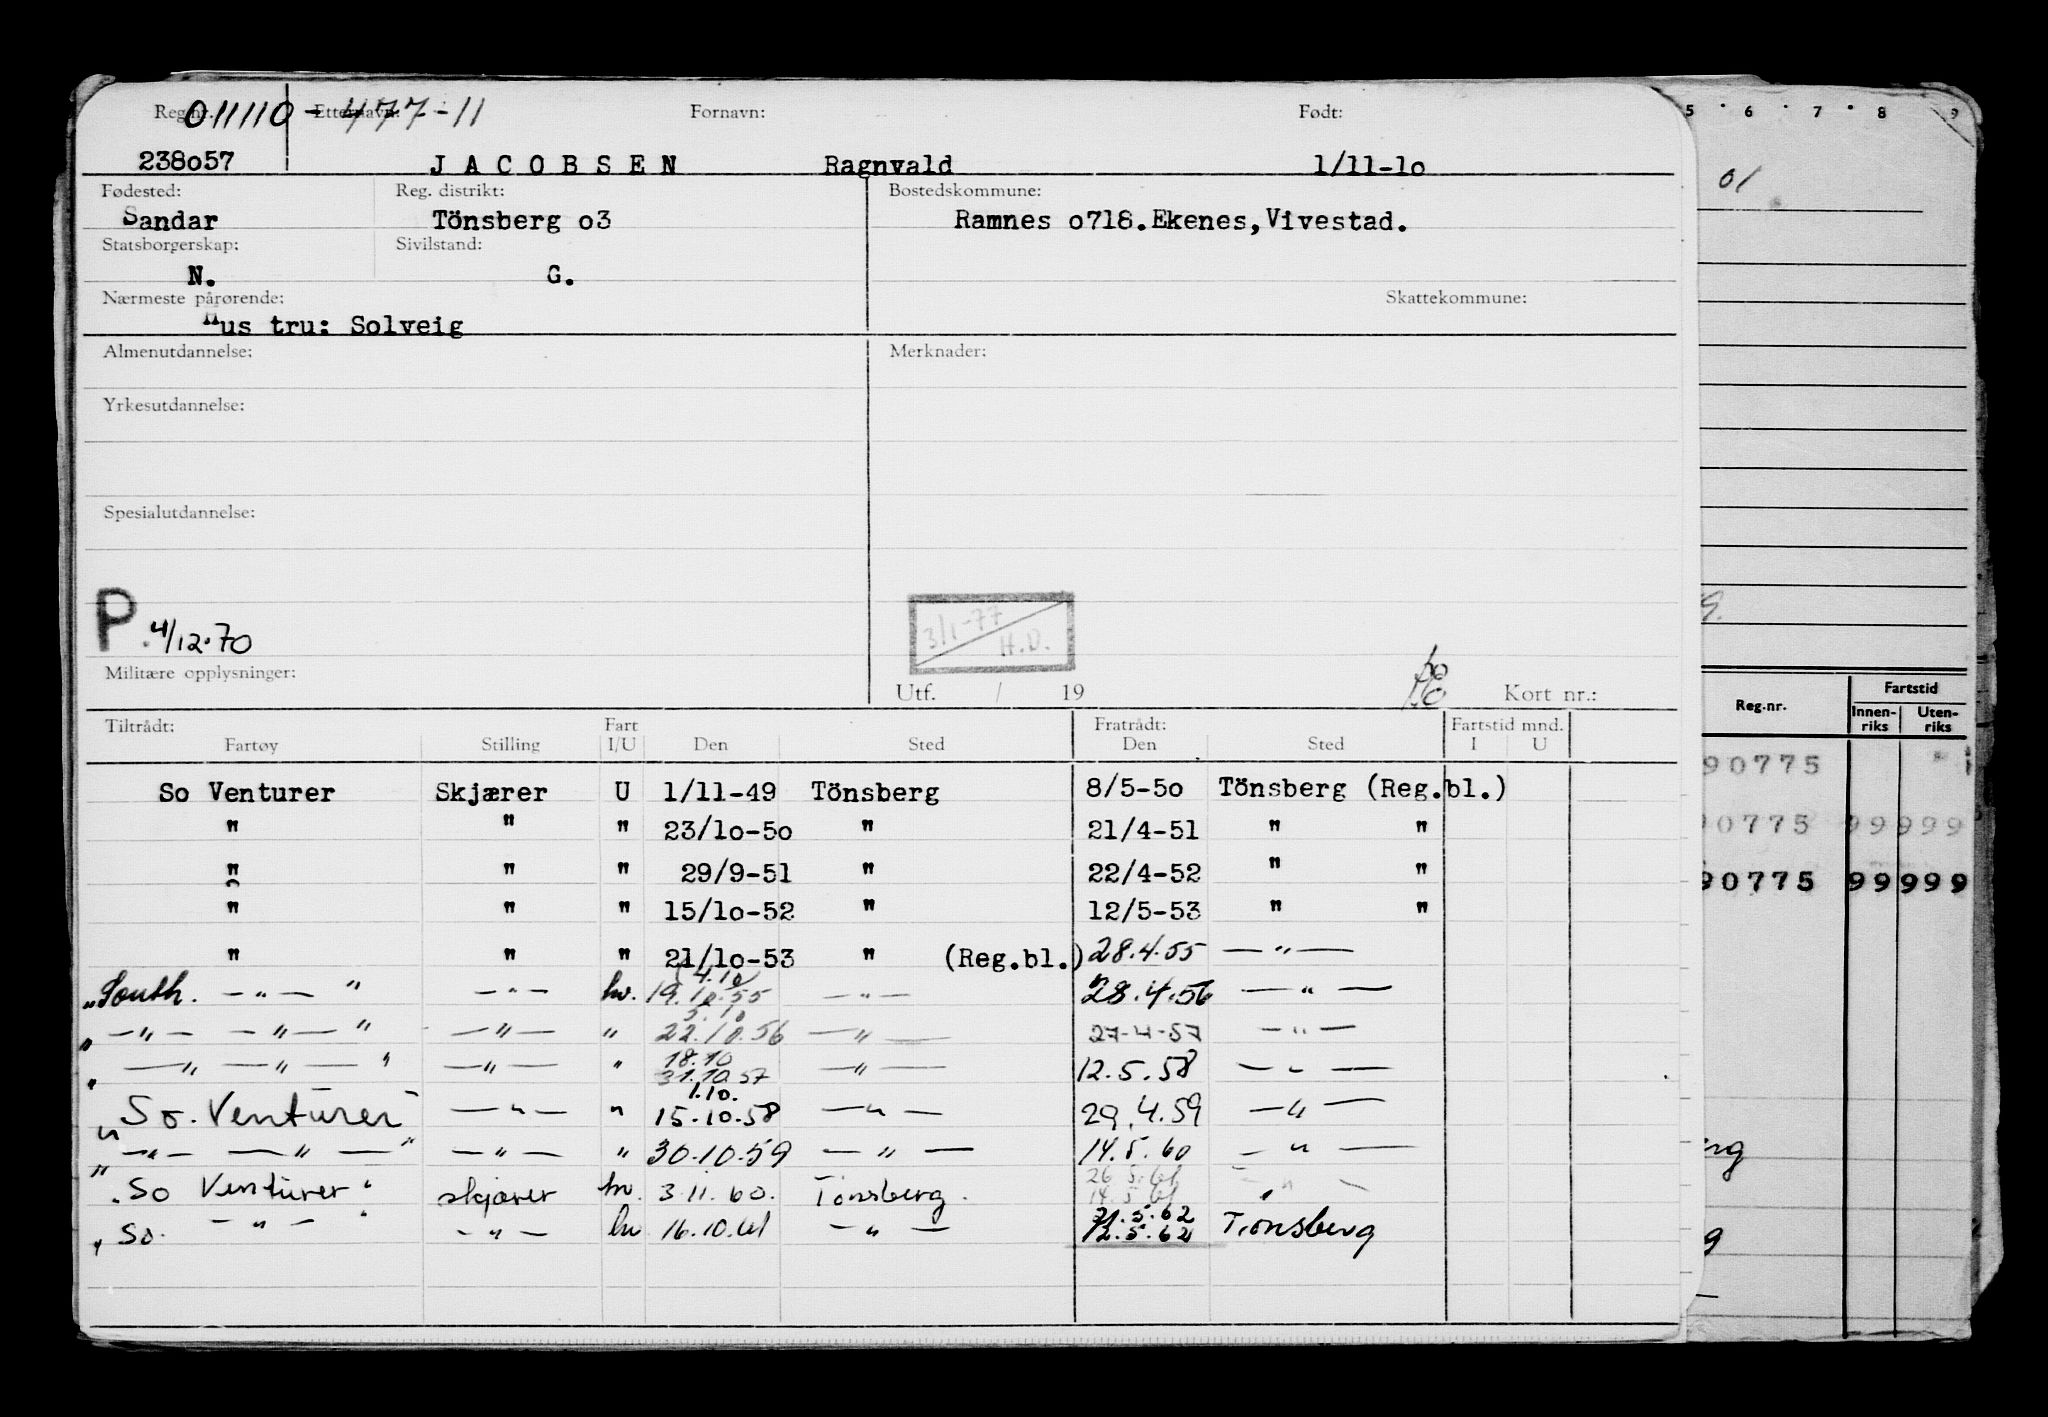 Reg.nr. 011110-477-11 Etternavn: Fornavn: Født:
238o57 J A C O B S E N Ragnvald 1/11-1o
Fødested: Reg. distrikt: Bostedskommune:
Sandar Tönsberg o3 Ramnes o718.Ekenes,Vivestad.
Statsborgerskap: Sivilstand:
N. G.
Nærmeste pårørende: Skattekommune:
Hus tru: Solveig
Almenutdannelse: Merknader:
Yrkesutdannelse:
Spesialutdannelse:
P 4/12.70
3/1-77
H.D.
Militære opplysninger: Utf. / 19 Kort nr.:
Tiltrådt: Fart Fratrådt: Fartstid mnd.
Fartøy Stilling I/U Den Sted Den Sted I U
So Venturer Skjærer U 1/11-49 Tönsberg 8/5-5o Tönsberg (Reg.bl.)
" " " 23/1o-5o " 21/4-51 " "
" " " 29/9-51 " 22/4-52 " "
" " " 15/1o-52 " 12/5-53 " "
" " " 21/1o-53 " (Reg.bl.) 28.4.55 — " —
4.10
"South. — " — " — " — hv. 19.10.55 — " — 28.4.56 — " —
5.10
" — " — — " — " — " — " 22.10.56 — " — 27-4-57 — " —
18.10
" — " — " — " — " — " 31.10.57 — " — 12.5.58 — " —
1.10.
"So. Venturer" — " — " 15.10.58 — " — 29.4.59 — " —
" — " — — " — " — " — " 30.10.59 — " — 14.5.60 — " —
26.5.61
"So Venturer" skjærer hv. 3.11.60. Tönsberg. 14.5.61 — " —
21.5.62
"So. — " — " — " — hv 16.10.61 — " — 12.5.62 Tönsberg
5 6 7 8 9
01
Reg.nr. Fartstid
Innen-riks Uten-riks
90775
90775 99999
90775 99999